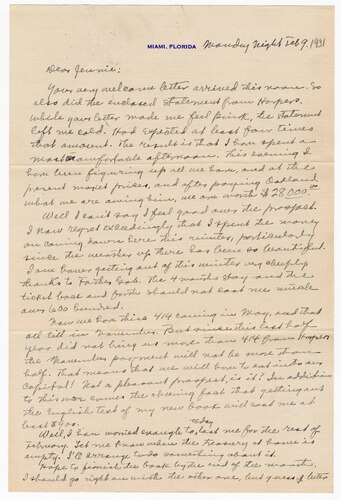 MIAMI, FLORIDA
Monday Night Feb 9, 1931
Dear Jennie:
Your very welcome letter arrived this noon. So
also did the enclosed statement from Harpers.
While your letter made me feel pink, the statement
left me cold. Had expected at least four times
that amount. The result is that I have spent a
most uncomfortable afternoon. This evening I
have been figuring up all we have, and at the
present market prices, and after paying
what we are owing him, we are worth $28,000.00
Well I can't say I feel good over the prospect.
I now regret exceedingly that I spent the money
on coming down here this winter, particularly
since the weather up there has been so beautiful.
I am however getting out of this winter very cheaply
thanks to Father Gale. The 4 months stay and the
ticket back and forth should not cost me much
over 600 hundred.
Now we have this 414 coming in May, and that
all till in November. But since this last half
year did not bring us more than 414 from Harpers
the November payment will not be more than
half. That means that we will have to eat into our
Capital! Not a pleasant prospect, is it? In addition
to this now comes the cheering fact that getting out
the English text of my new book will cost me at
least $400.
Well, I have worried enough today to last me for the rest of
February. Let me know when the treasury at home is
empty. I'll arrange to do something about it.
Hope to finish the book by the end of the month.
I should go right on with the other one, but guess I better